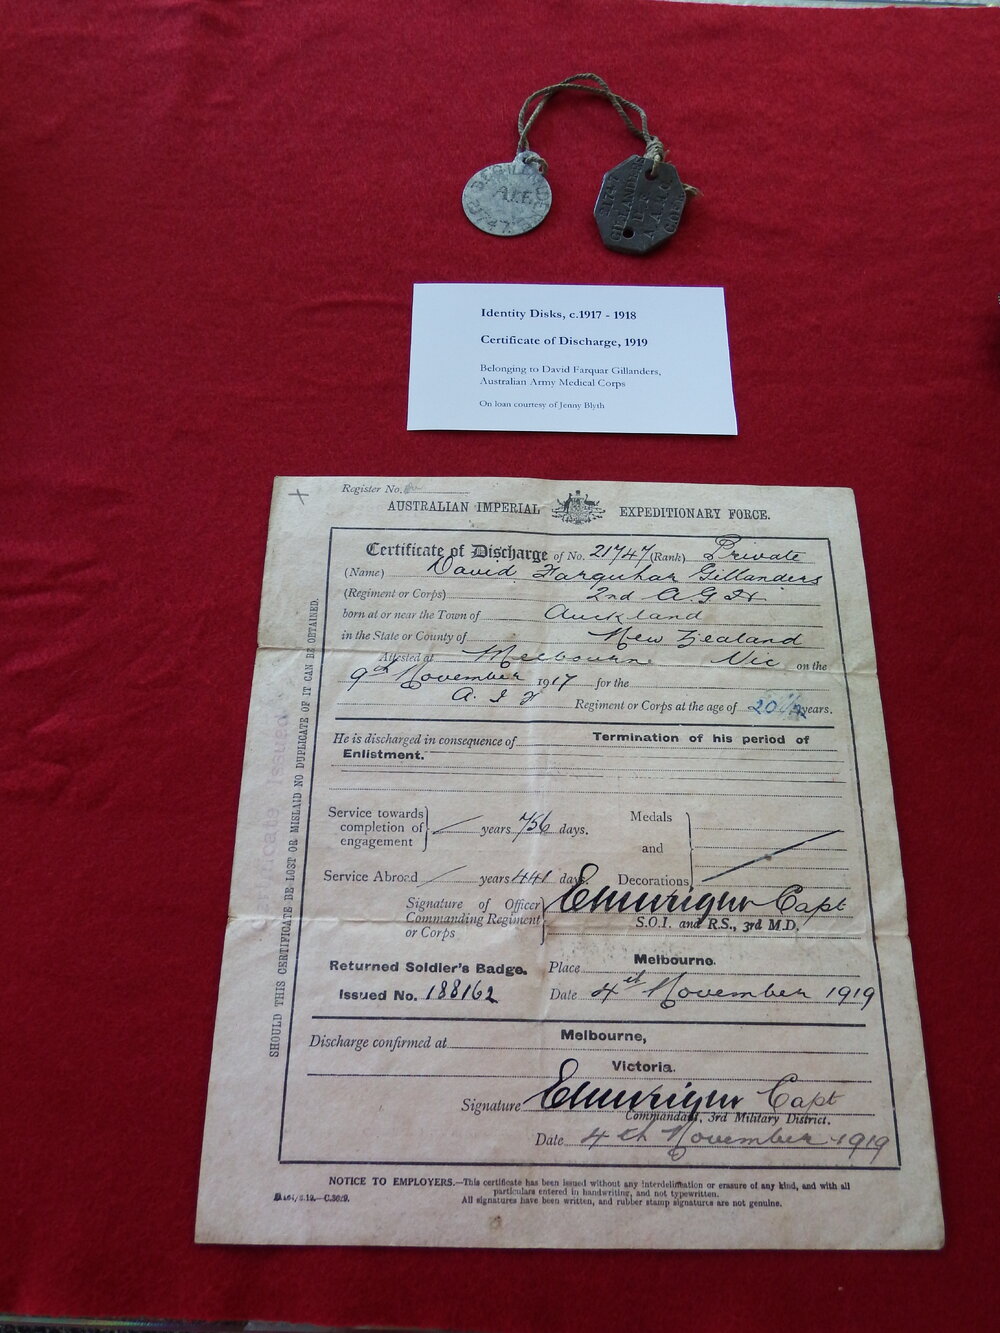 D.F.GILLANDERS
A.I.F.
21747
21747
GILLANDERS
D F
A.A.M.C.
Identity Disks, c.1917 - 1918
Certificate of Discharge, 1919
Belonging to David Farquar Gillanders,
Australian Army Medical Corps
On loan courtesy of Jenny Blyth
Register No.
AUSTRALIAN IMPERIAL EXPEDITIONARY FORCE.
Certificate of Discharge of No. 21747 (Rank) Private
(Name) David Farquhar Gillanders
(Regiment or Corps) 2nd A G H
born at or near the Town of Auckland
in the State or County of New Zealand
Attested at Melbourne Vic on the
9th November 1917 for the
A. I F Regiment or Corps at the age of 20 years.
He is discharged in consequence of Termination of his period of
Enlistment.
Service towards
completion of
engagement
years 756 days.
Medals
and
Decorations
Service Abroad years 441 days.
Signature of Officer
Commanding Regiment
or Corps
Capt
S.O.I. and R.S., 3rd M.D.
Returned Soldier's Badge. Place Melbourne.
Issued No. 188162 Date 4th November 1919
Discharge confirmed at Melbourne,
Victoria.
Signature Capt
Commandant, 3rd Military District.
Date 4th November 1919
NOTICE TO EMPLOYERS.—This certificate has been issued without any interdelineation or erasure of any kind, and with all
particulars entered in handwriting, and not typewritten.
All signatures have been written, and rubber stamp signatures are not genuine.
SHOULD THIS CERTIFICATE BE LOST OR MISLAID NO DUPLICATE OF IT CAN BE OBTAINED.